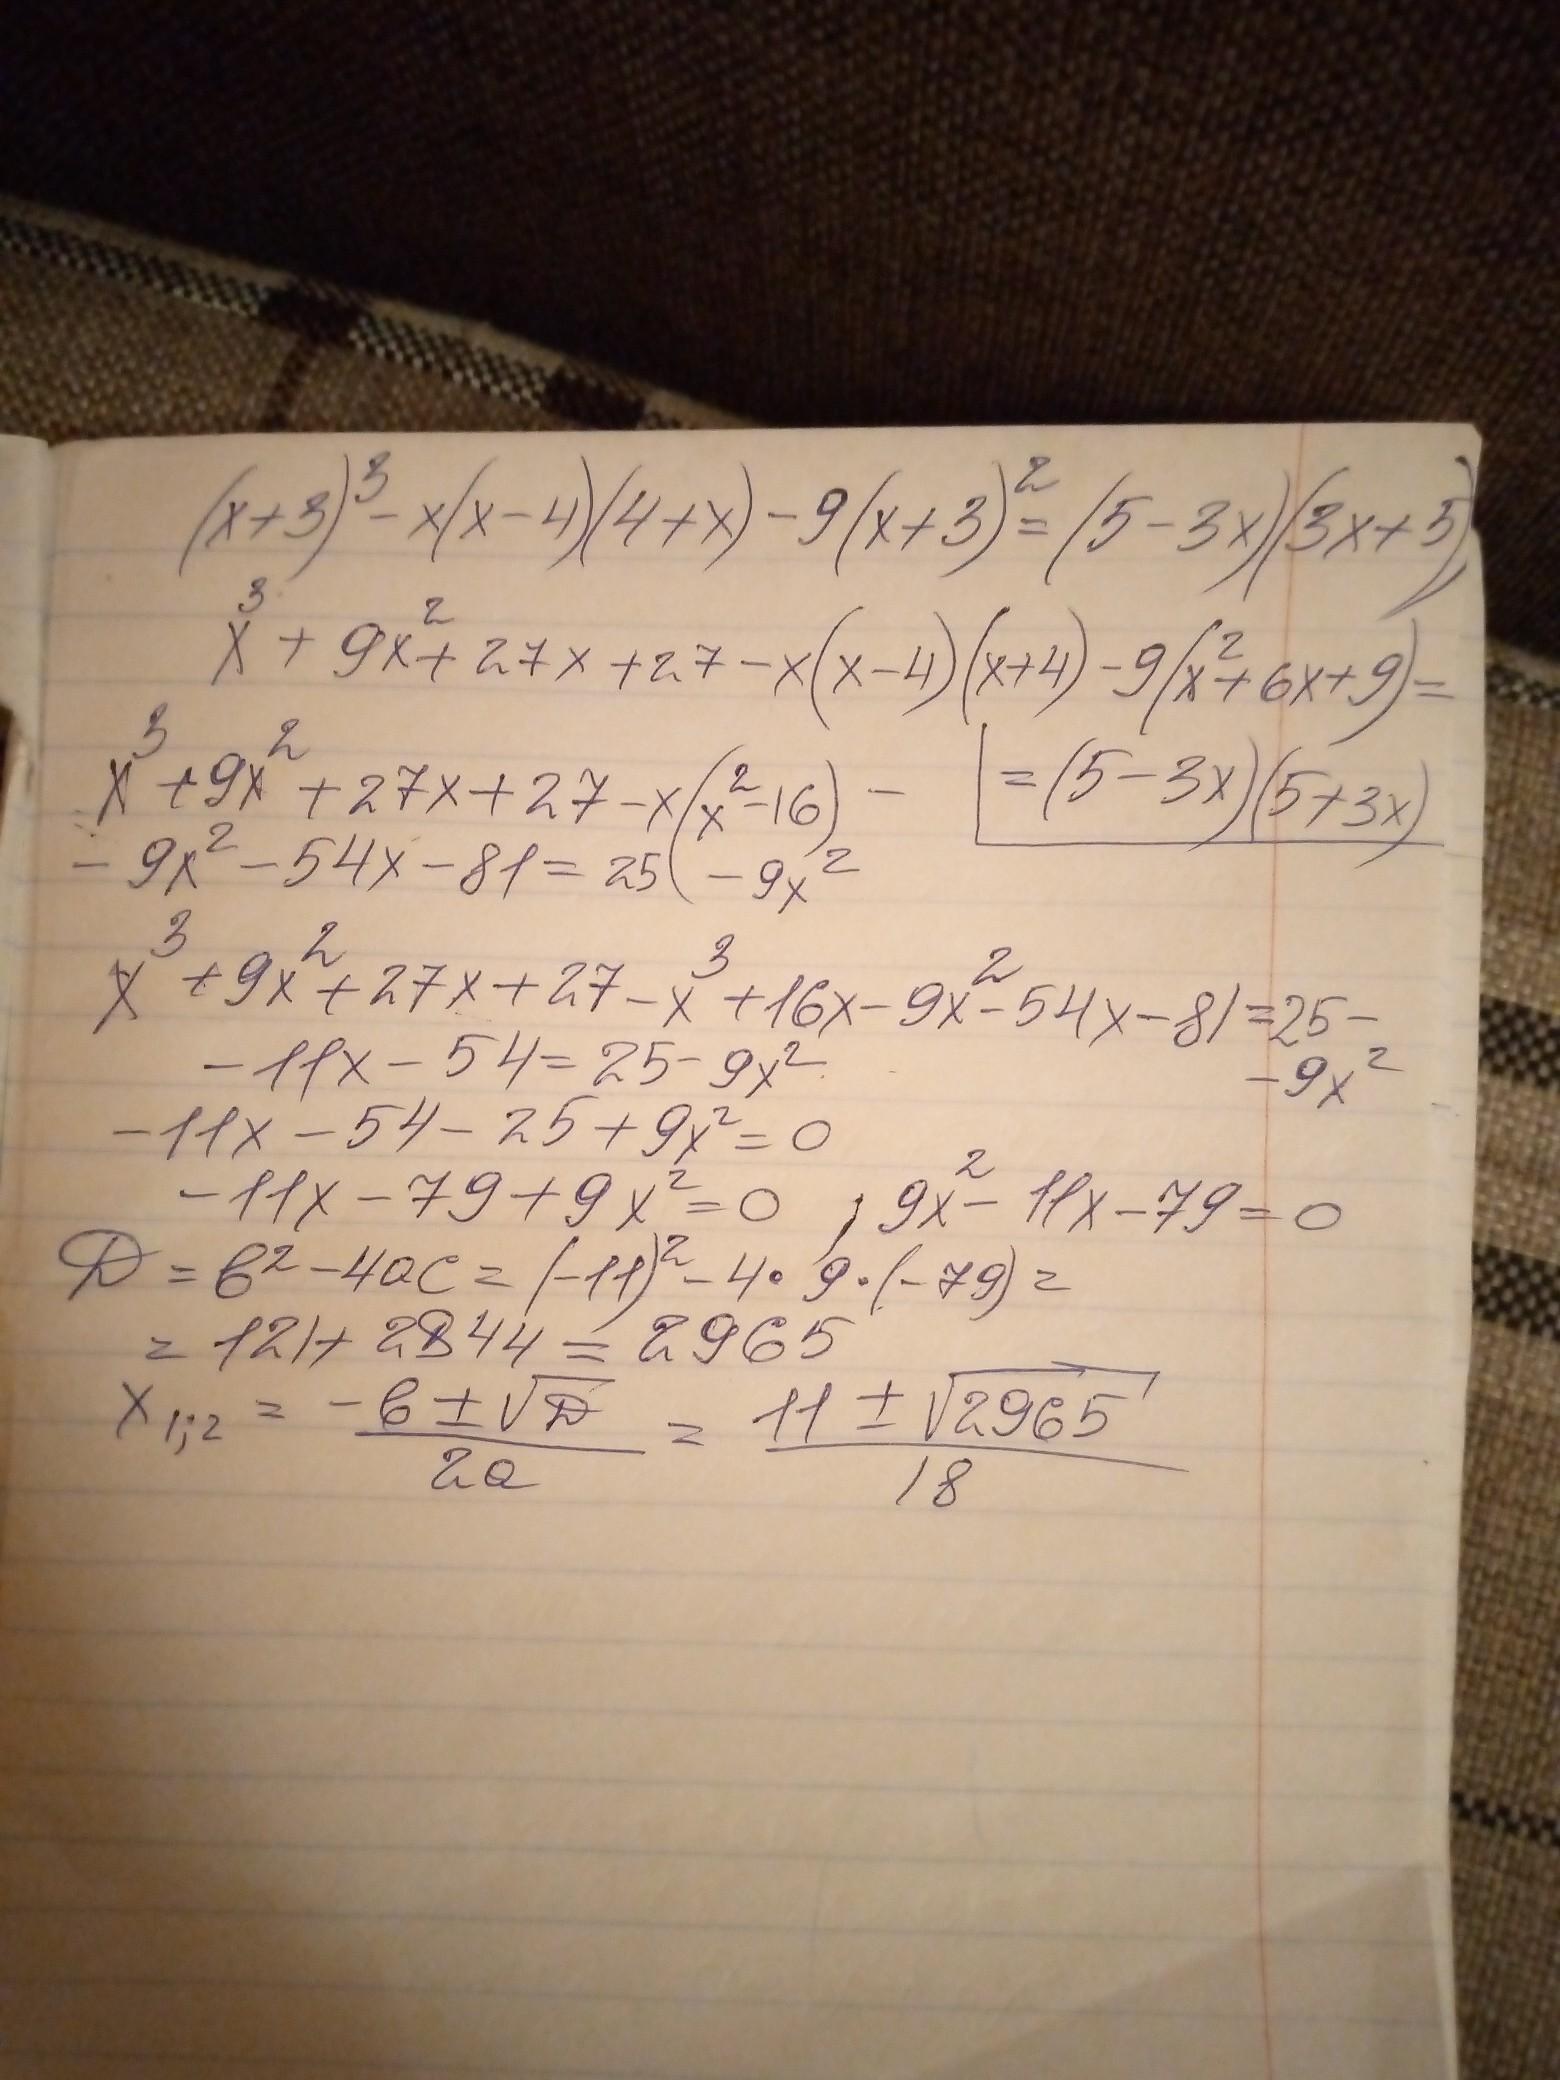 (x+3)³-x(x-4)(4+x)-9(x+3)²=(5-3x)(3x+5)
x³+9x²+27x+27-x(x-4)(x+4)-9(x²+6x+9)=
=(5-3x)(5+3x)
x³+9x²+27x+27-x(x²-16)-
-9x²-54x-81=25-9x²
x³+9x²+27x+27-x³+16x-9x²-54x-81=25-
-9x²
-11x-54=25-9x²
-11x-54-25+9x²=0
-11x-79+9x²=0 ; 9x²-11x-79=0
D=b²-4ac=(-11)²-4·9·(-79)=
=121+2844=2965
x₁;₂ = (-b±√D)/(2a) = (11±√2965)/18